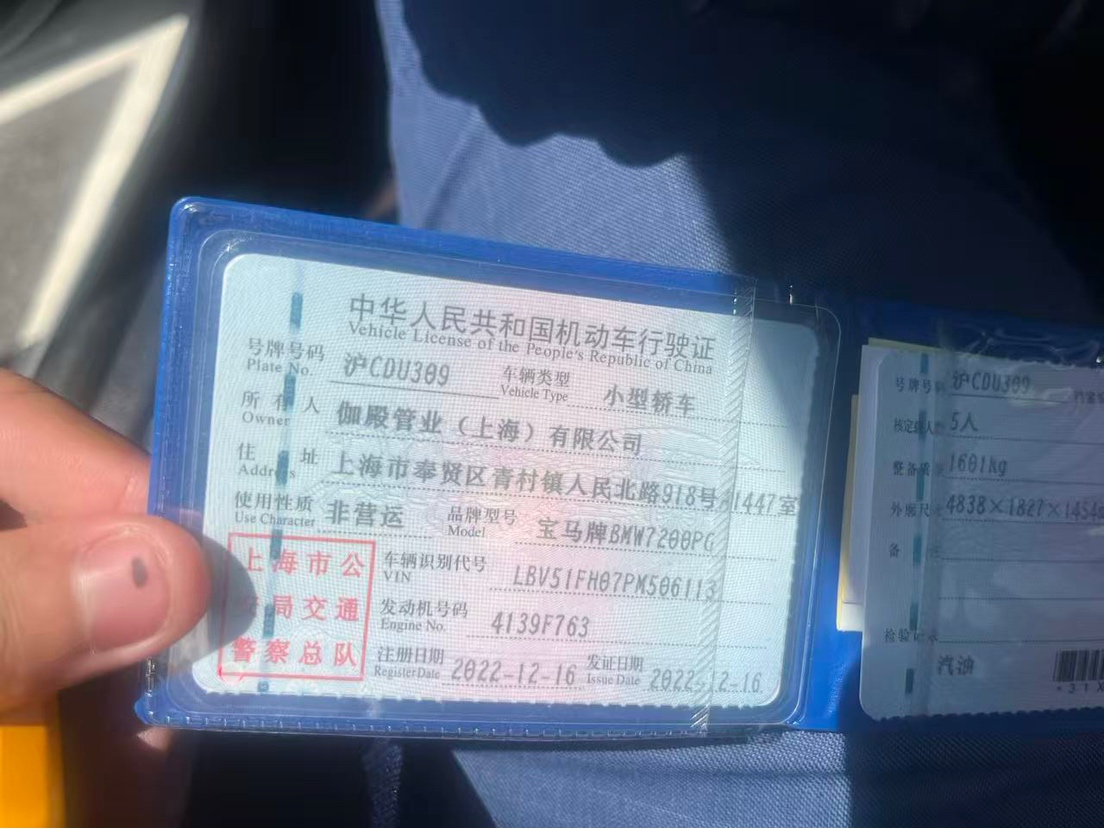 中华人民共和国机动车行驶证
Vehicle License of the People's Republic of China
号牌号码 沪CDU309 车辆类型 小型轿车
Plate No. Vehicle Type
所有人 伽殿管业（上海）有限公司
Owner
住址 上海市奉贤区青村镇人民北路918号 1447室
Address
使用性质 非营运 品牌型号 宝马牌BMW7200PG
Use Character Model
车辆识别代号 LBV51FH07PM506113
VIN
发动机号码 4139F763
Engine No.
注册日期 2022-12-16 发证日期 2022-12-16
Register Date Issue Date
上海市公
安局交通
警察总队
号牌号 沪CDU309
5人
整备质 1601kg
外廓尺 4838×1827×1454
备
检验记录
汽油